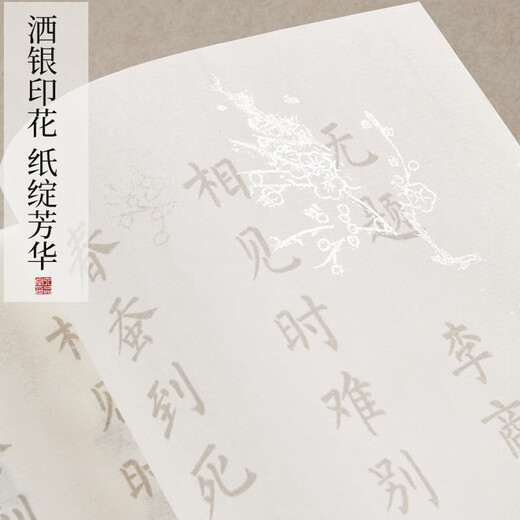 洒银印花 纸绽芳华
无题
李商
相见时难别
春蚕到死
相见时